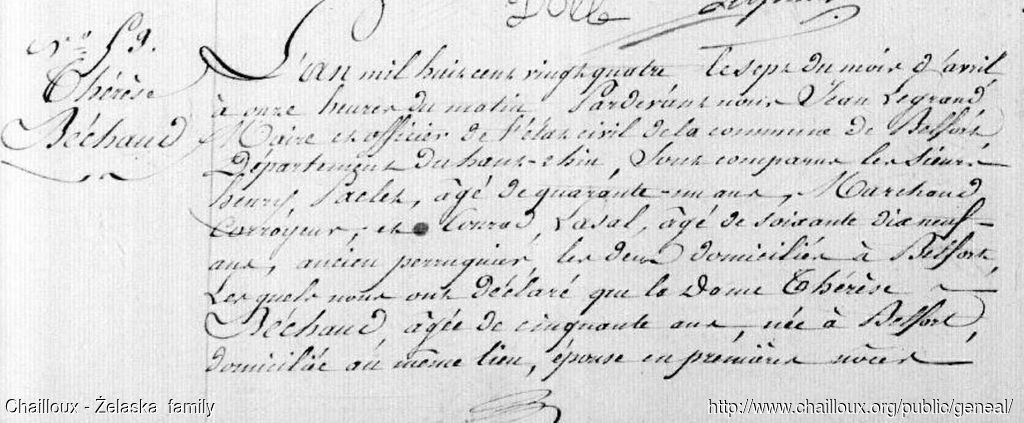 Dolle
N.º 59.
Thérèse
Béchaud
L'an mil huit cent vingt quatre le sept du mois d'avril
à onze heures du matin Pardevant nous Jean Legrand,
Maire et officier de l'état civil de la commune de Belfort
Département du haut-rhin, Sont comparus les Sieurs
henry Paclet, âgé de quarante-un ans, Marchand
Corroyeur, et Conrad, Lasal, âgé de soixante dix neuf
ans, ancien perruquier, les deux domiciliés à Belfort,
Les quels nous ont déclaré que la Dame Thérèse
Béchaud âgée de cinquante ans, née à Belfort,
domiciliée au même lieu, épouse en premières nôces
Chailloux - Żelaska family
http://www.chailloux.org/public/geneal/